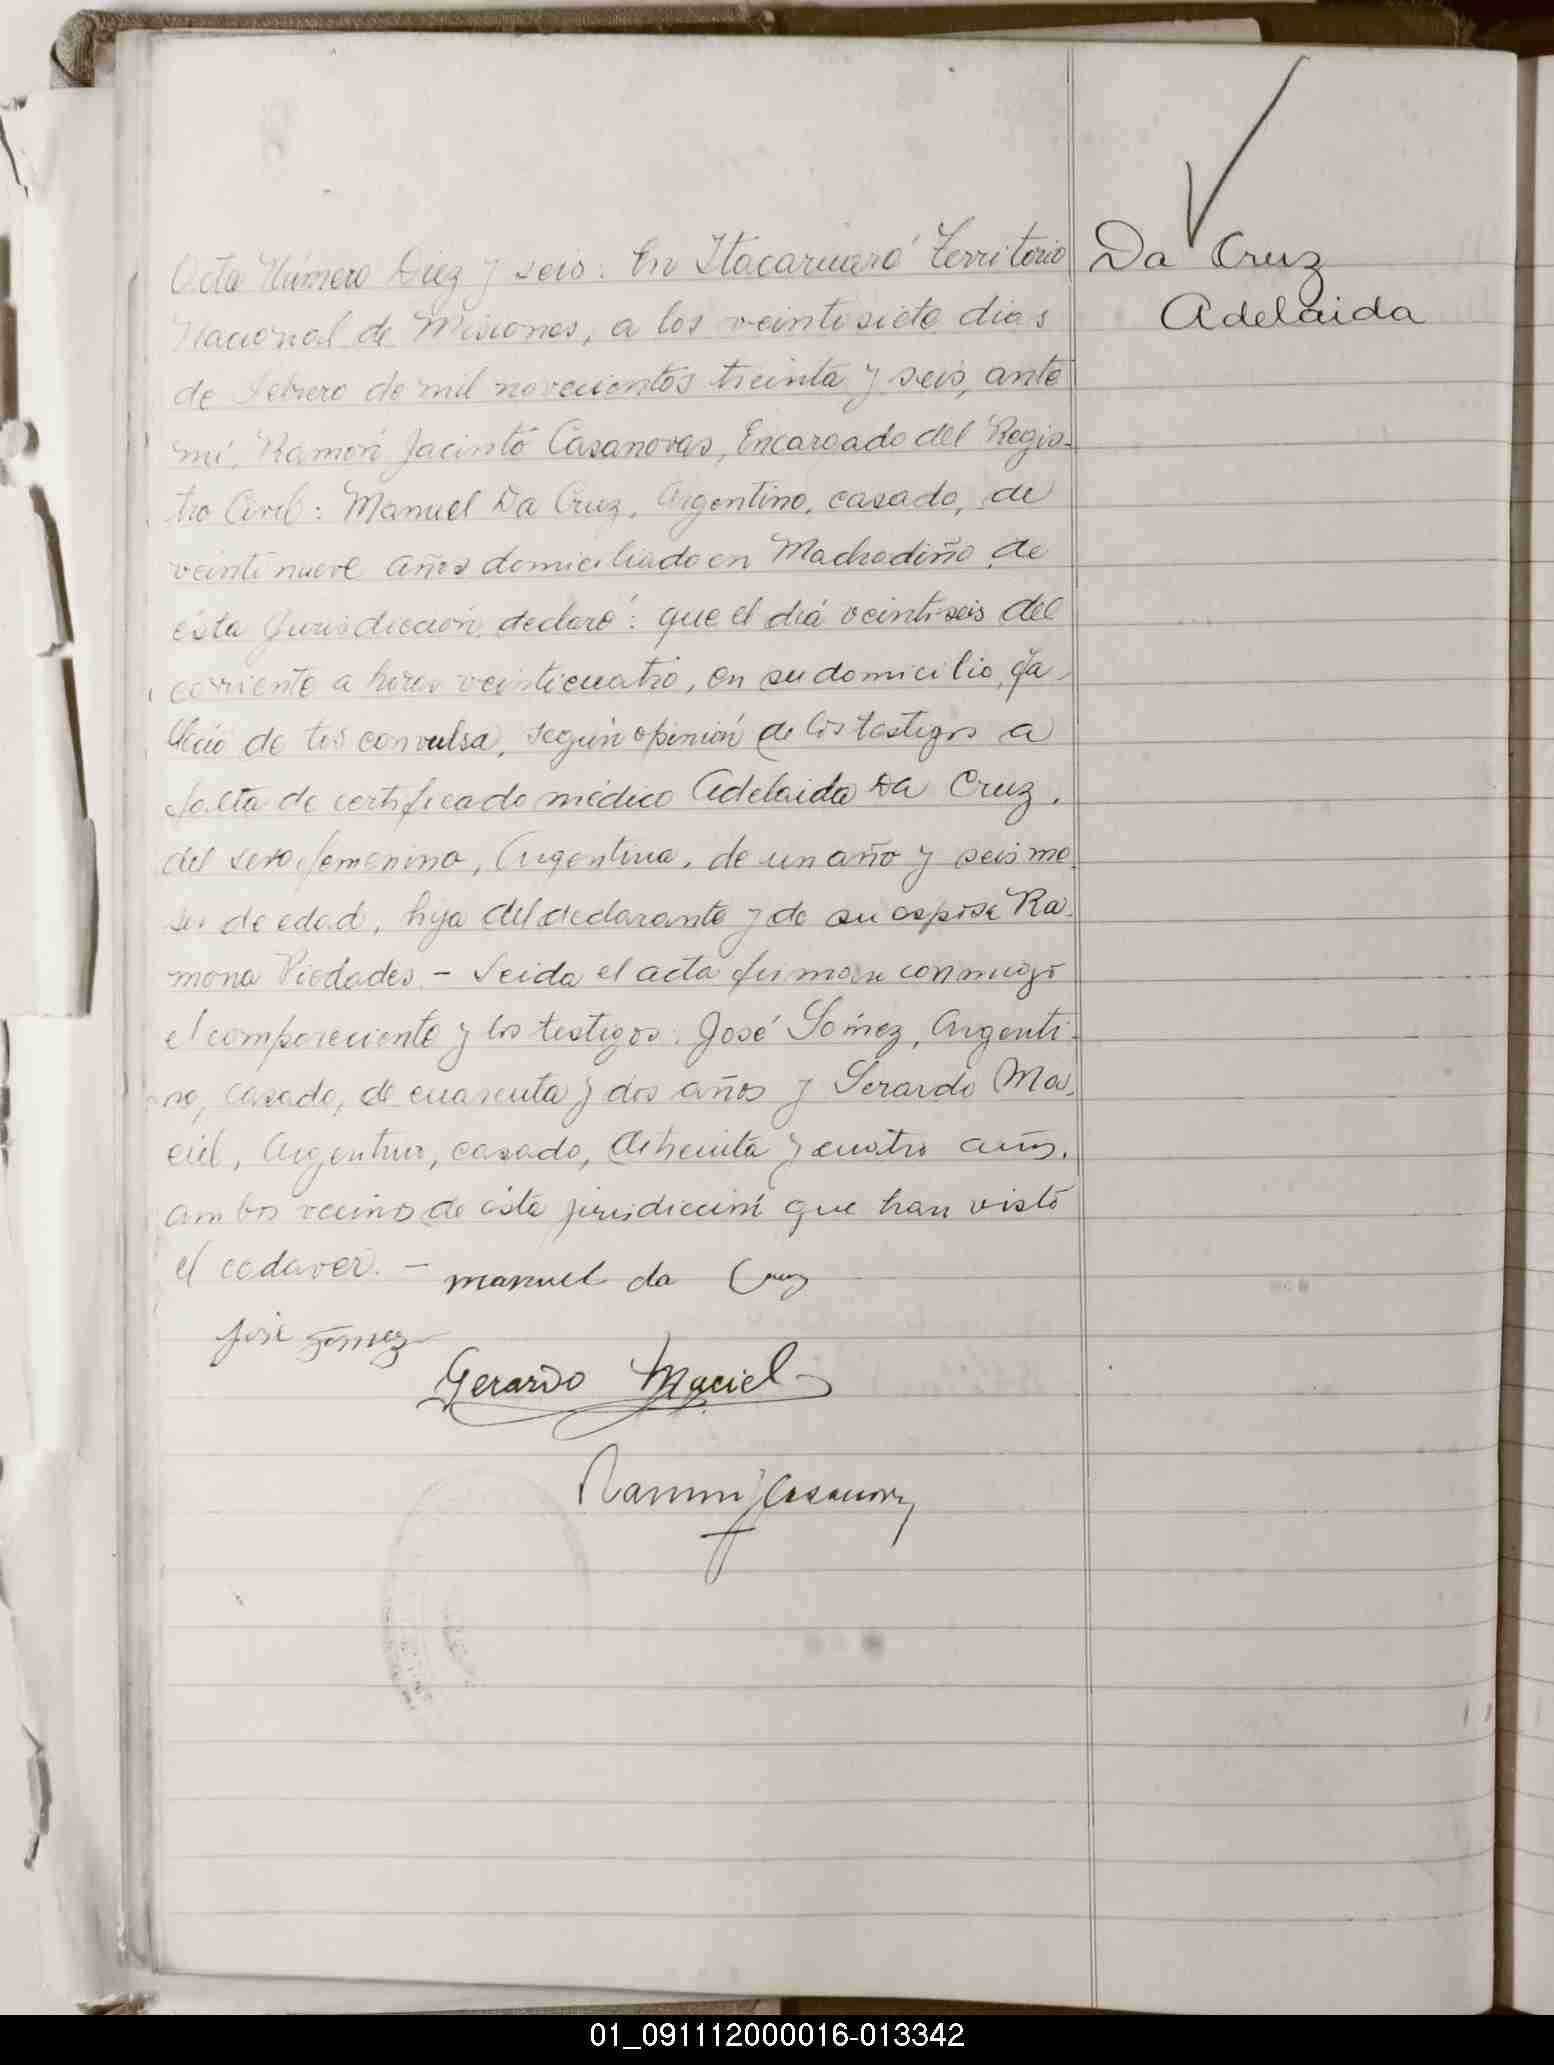 Da Cruz
Adelaida
Acta Número Diez y seis: En Itacaruaré Territorio
Nacional de Misiones, a los veintisiete dias
de Febrero de mil novecientos treinta y seis, ante
mí, Ramón Jacinto Casanovas, Encargado del Regis-
tro Civil: Manuel Da Cruz, Argentino, casado, de
veintinueve años domiciliado en Machadiño, de
ésta jurisdicción, declaró: que el diá veintiseis del
corriente a horas veinticuatro, en su domicilio, fa-
lleció de tos convulsa, según opinión de los testigos a
falta de certificado médico Adelaida Da Cruz,
del sexo femenino, Argentina, de un año y seis me-
ses de edad, hija del declarante y de su esposa Ra-
mona Piedades. - Leida el acta firman conmigo
el compareciente y los testigos: José Gómez, Argenti-
no, casado, de cuarenta y dos años y Gerardo Ma-
ciel, Argentino, casado, de treinta y cuatro años,
ambos vecinos de ésta jurisdicción que han visto
el cadaver. -
manuel da Cruz
José Gómez
Gerardo Maciel
Ramón J Casanovas
01_091112000016-013342